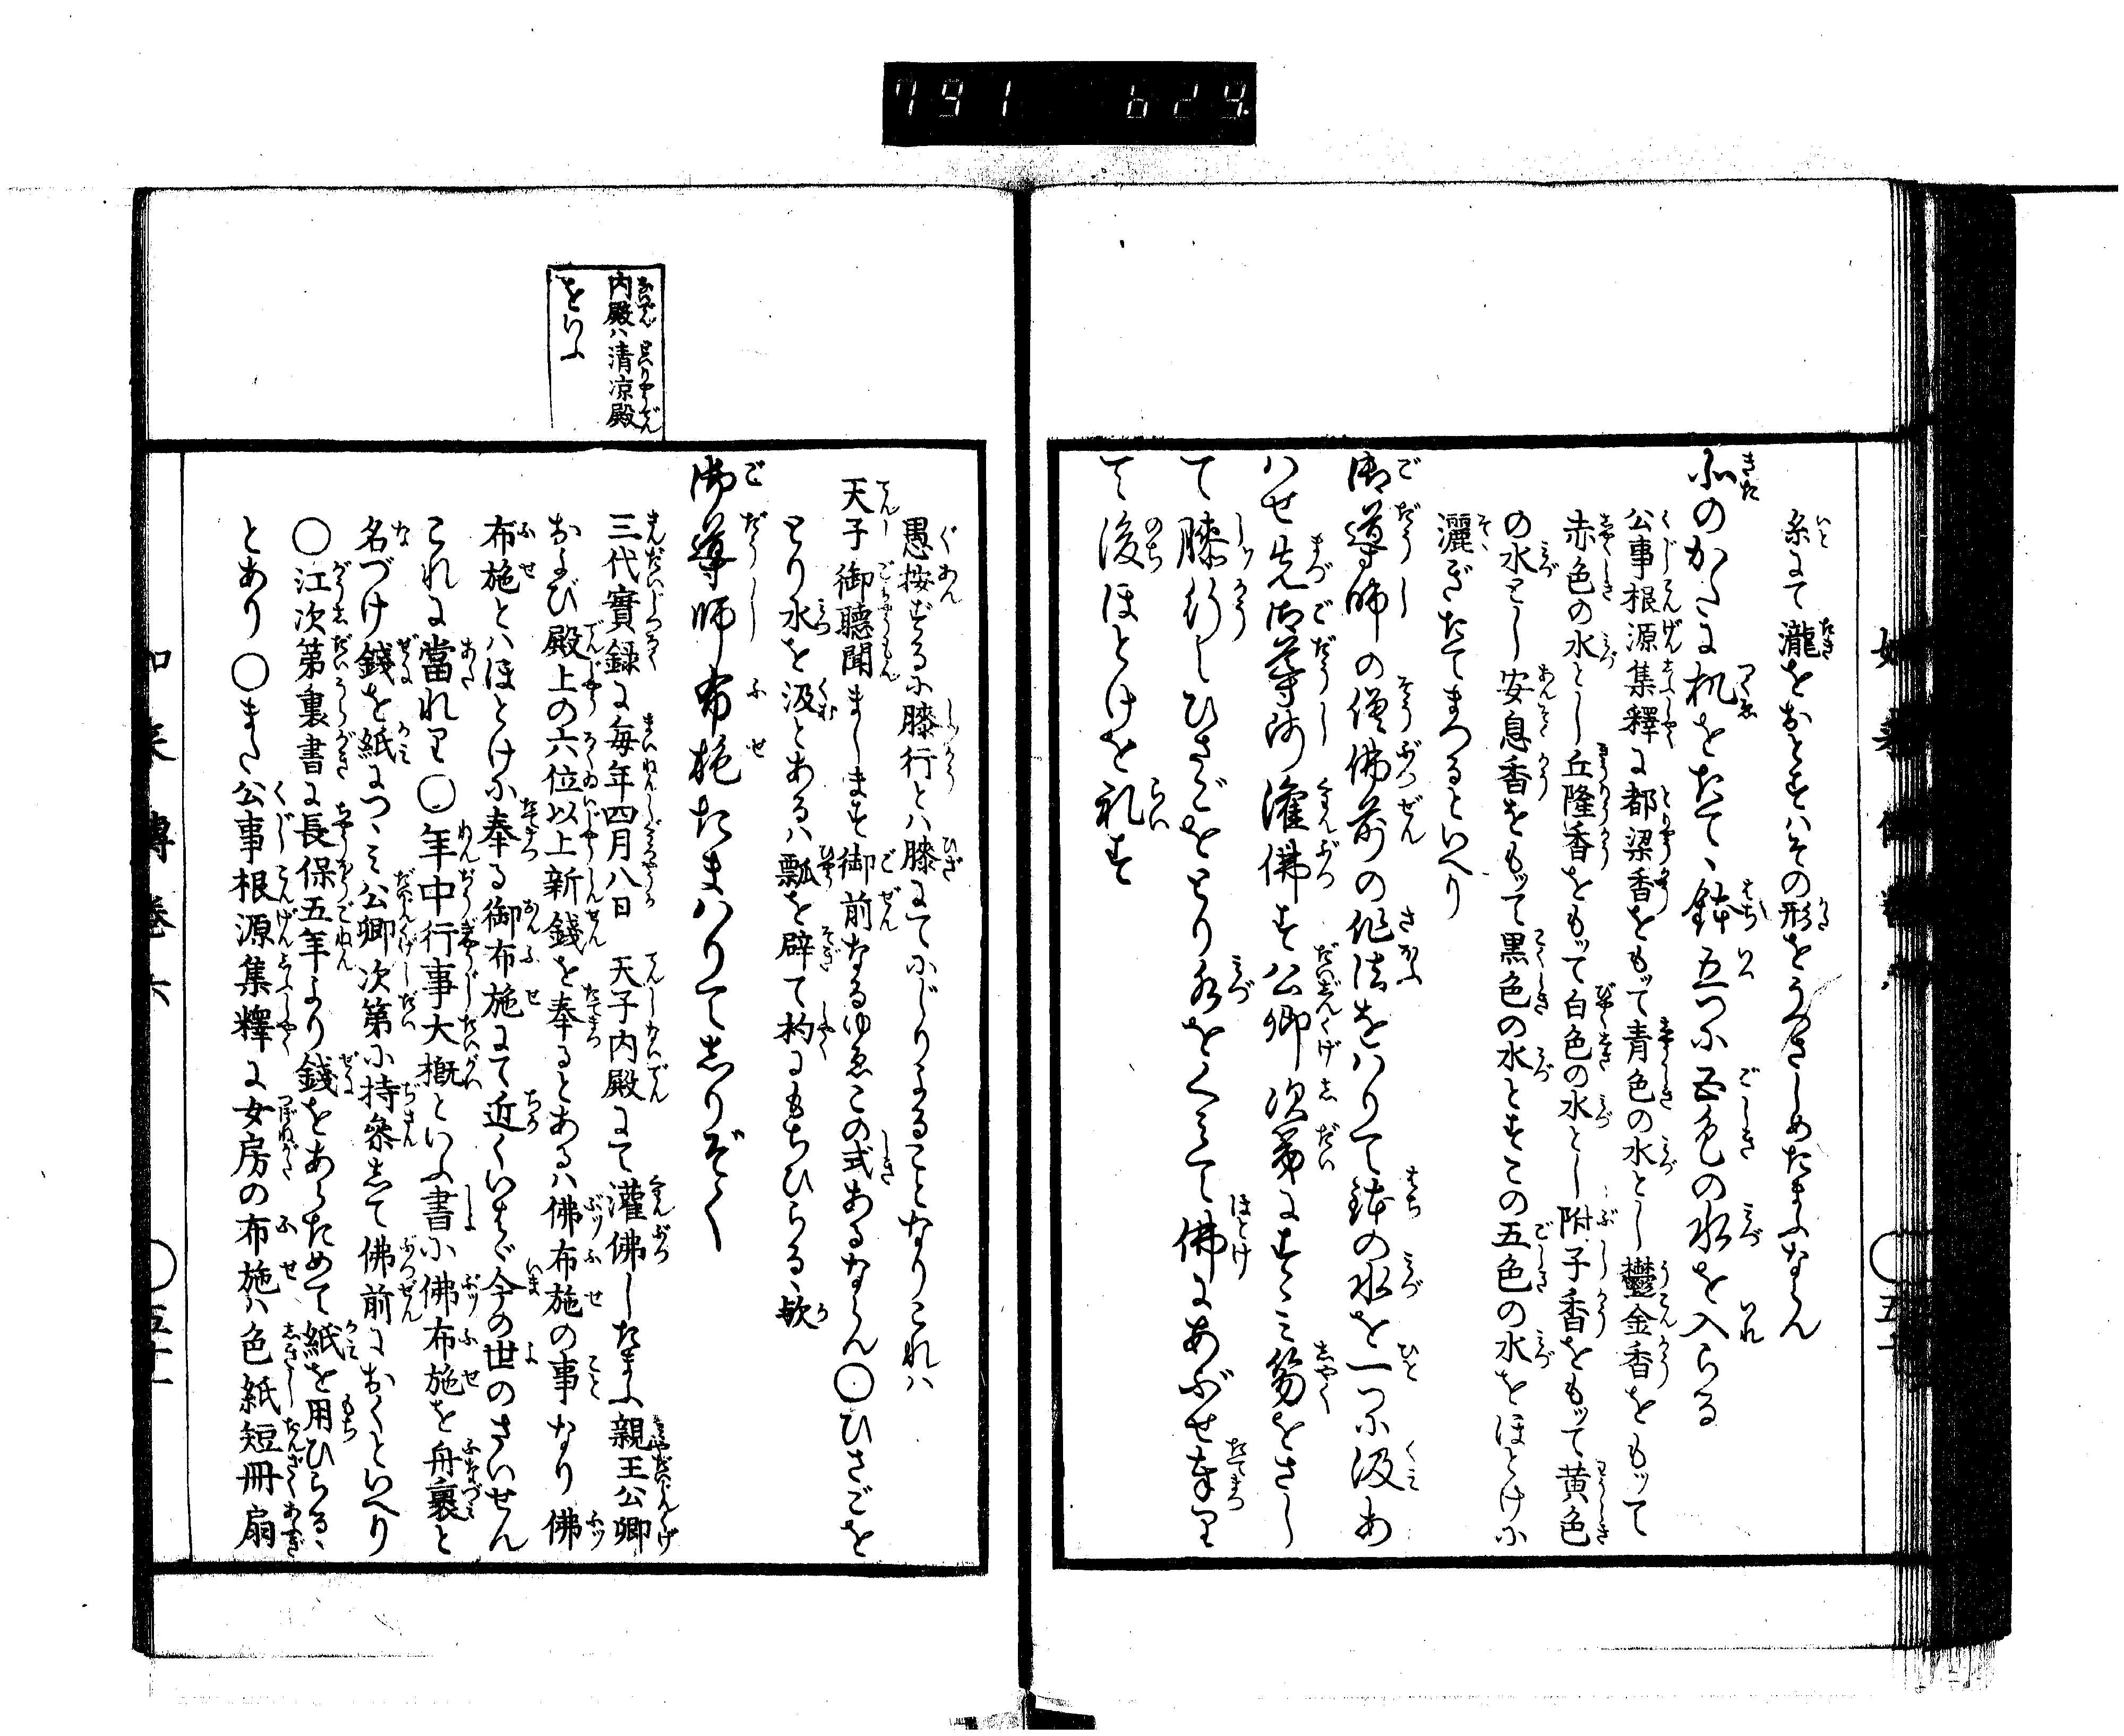 糸にて瀧をおとすはその形をうつさしめたまふならん
北のかたに机をたて、鉢五つに五色の水を入らる
公事根源集釋に都梁香をもッて青色の水とし鬱金香をもッて
赤色の水とし丘隆香をもッて白色の水とし附子香をもッて黄色
の水とし安息香をもッて黒色の水とすこの五色の水をほとけに
灑ぎたてまつるといへり
御導師の僧佛前の作法をはりて鉢の水を一つに汲あ
はせ先御導師灌佛す公卿次第にすゝミ笏をさし
て膝行しひさごをとり水をくミて佛にあぶせ奉り
て後ほとけを礼す
愚按ずるに膝行とハ膝にてにじりよることなりこれハ
天子御聽聞まします御前なるゆゑこの式あるならん〇ひさごを
とり水を汲とあるハ瓢を辟て杓にもちひらるゝ歟
御導師布施たまハりてしりぞく
三代實録に毎年四月八日　天子内殿にて灌佛したまふ親王公卿
および殿上の六位以上新錢を奉るとあるハ佛布施の事なり佛
布施とハほとけに奉る御布施にて近くいはゞ今の世のさいせん
これに當れり〇年中行事大概といふ書に佛布施を舟裹と
名づけ錢を紙につゝミ公卿次第に持參して佛前におくといへり
〇江次第裏書に長保五年より錢をあらためて紙を用ひらるゝ
とあり〇また公事根源集釋に女房の布施ハ色紙短冊扇
内殿ハ清凉殿
をいふ
791 629